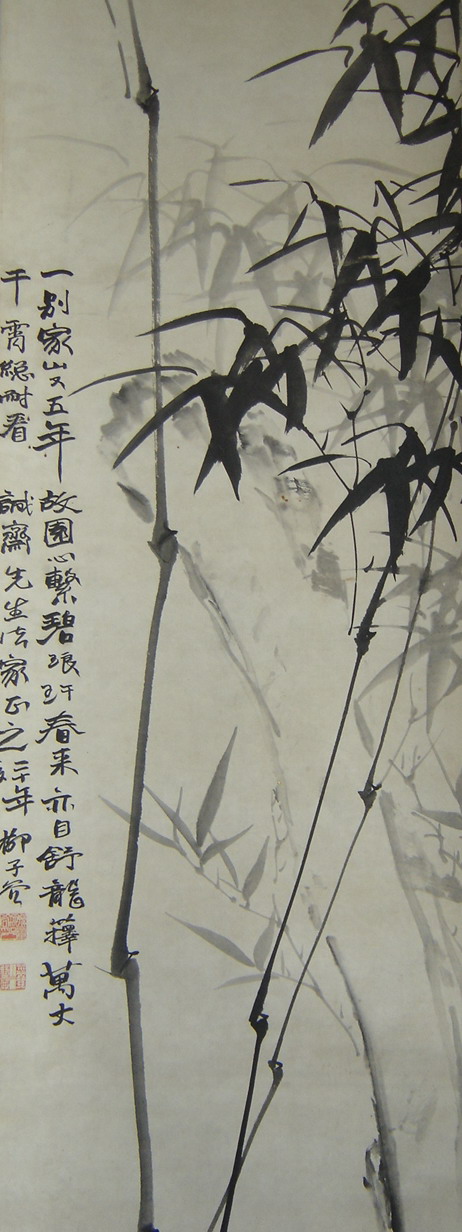 一別家山又五年故園心繫碧琅玕春来亦自舒龍蘀萬丈
干霄緫耐看 誠齋先生法家正之 年 柳子谷